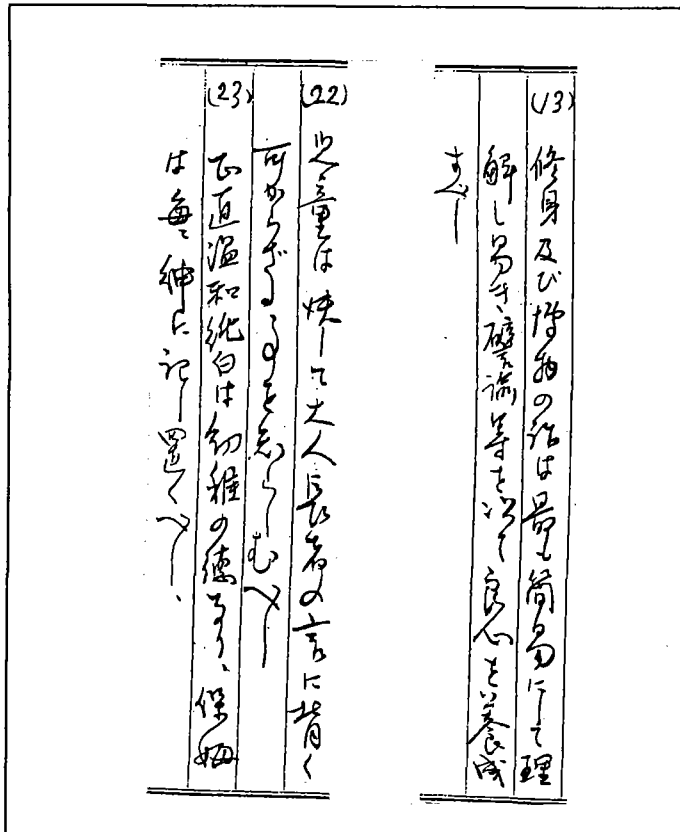 (13) 修身及び博物の話は最も簡易にして理
解し易き譬諭等を以て良心を養成
すべし
(22) 児童は決して大人長者の言に背く
可からざる事を知らしむべし
(23) 正直温和純白は幼稚の徳なり、保姆
は毎々紳に記し置くべし、